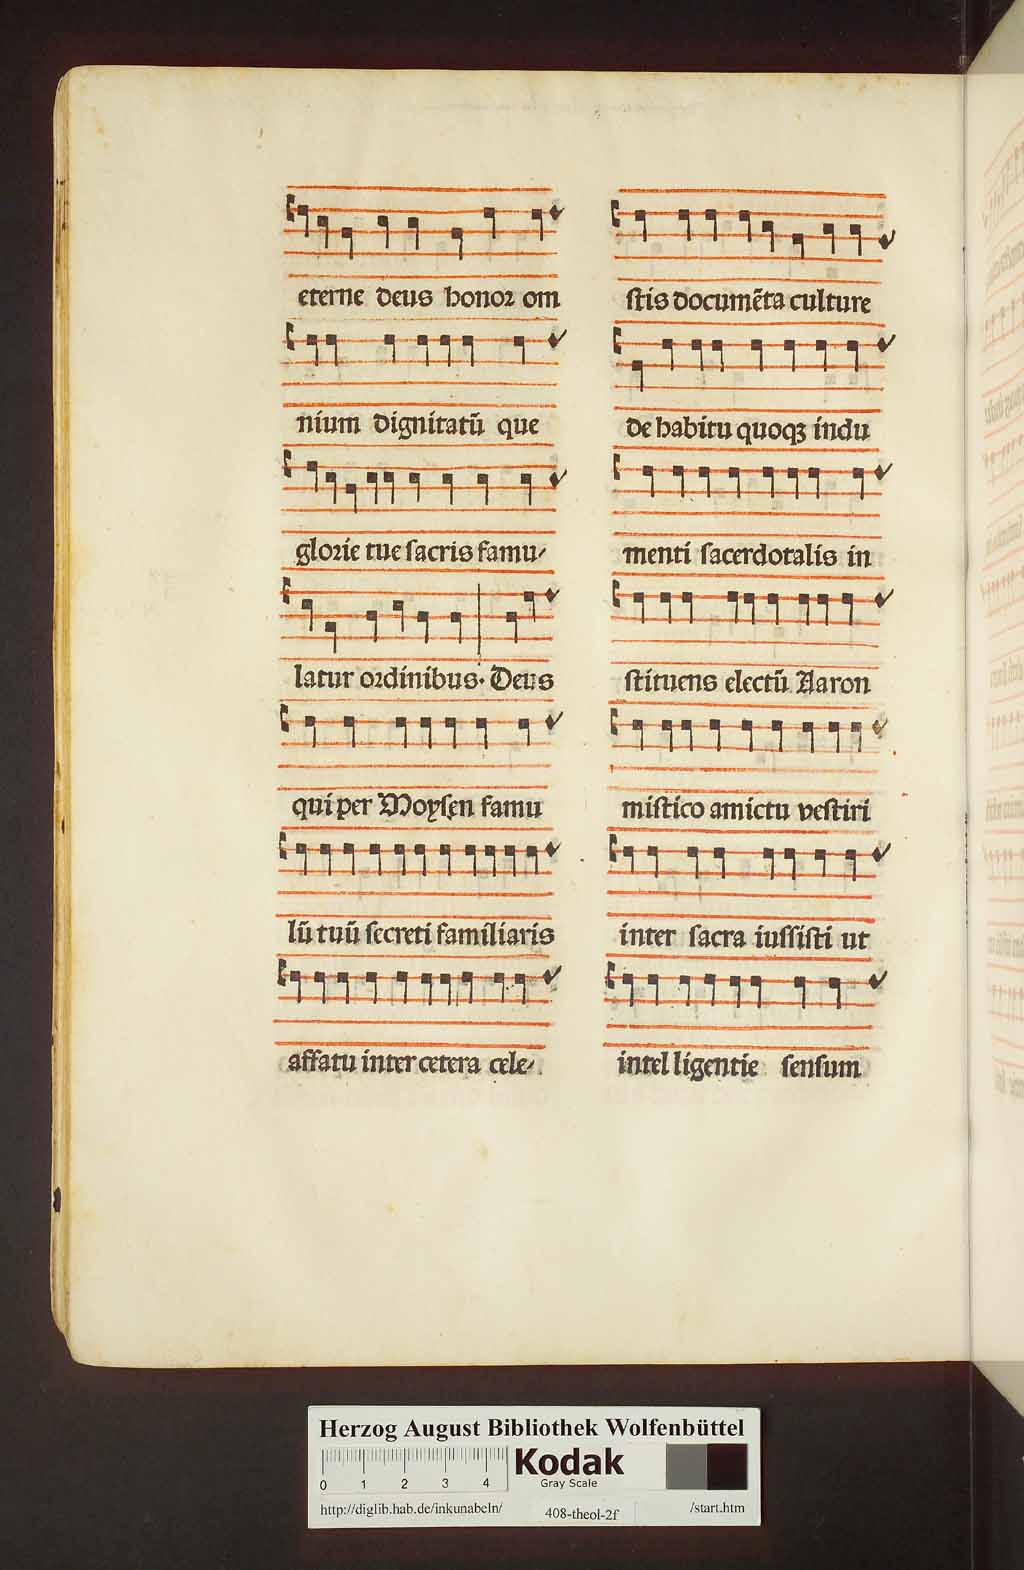 eterne deus honoꝛ om
nium dignitatū que
gloꝛie tue ſacris famu⸗
latur oꝛdinibus. Deus
qui per Moyſen famu
lū tuū ſecreti familiaris
affatu inter cetera cele⸗
ſtis documēta culture
de habitu quoqꝫ indu
menti ſacerdotalis in
ſtituens electū Aaron
miſtico amictu veſtiri
inter ſacra iuſſiſti ut
intel ligentie ſenſum
Herzog August Bibliothek Wolfenbüttel
0 1 2 3 4
Kodak
Gray Scale
http://diglib.hab.de/inkunabeln/ 408-theol-2f /start.htm